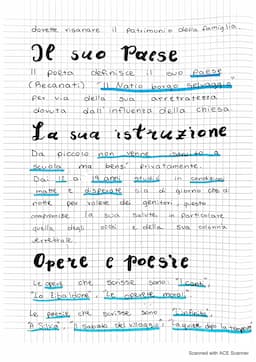 dovette risanare il patrimonio della famiglia.
Il suo Paese
Il poeta definisce il suo paese
(Recanati) "Il Natio borgo selvaggio"
per via della sua arretratezza
dovuta dall'influenza della chiesa
La sua istruzione
Da piccolo non venne istruito a
scuola ma bensì privatamente.
Dai 12 ai 19 anni studiò in condizioni
matte e disperate sia di giorno che di
notte per volere dei genitori, questo
compromise la sua salute in particolare
quella degli occhi e della sua colonna
vertebrale.
Opere e poesie
Le opere che scrisse sono: "I canti",
"Lo Zibaldone", "Le operette morali"
Le poesie che scrisse sono: "L'infinito",
"A Silvia" "Il sabato del villaggio", "La quiete dopo la tempesta"
Scanned with ACE Scanner